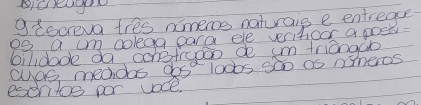 9 Escreva três números naturais e entregue
os a um colega para ele verificar a possi-
bilidade da construção de um triângulo
cujas medidas dos lados são os números
escritos por você.